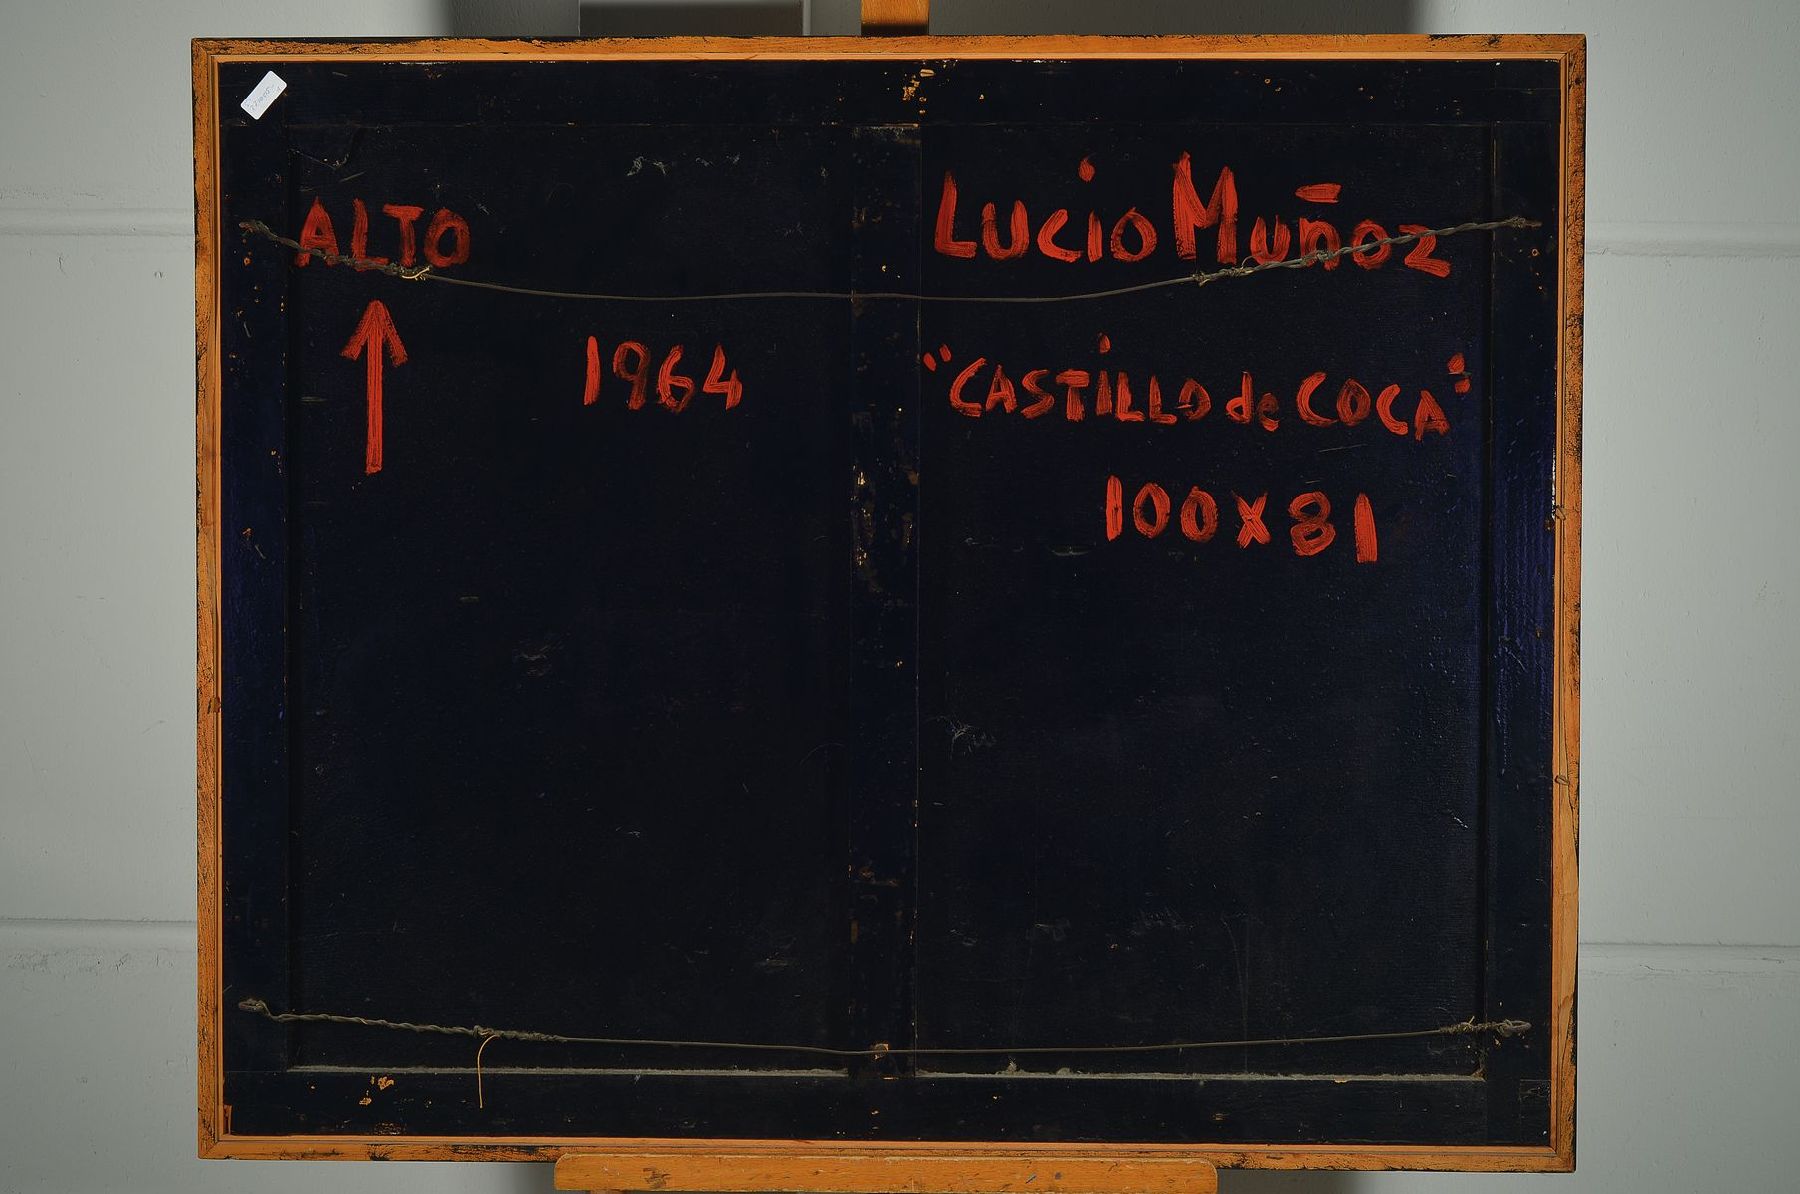 ALTO
LUCIO MUÑOZ
1964
"CASTILLO de COCA"
100X81